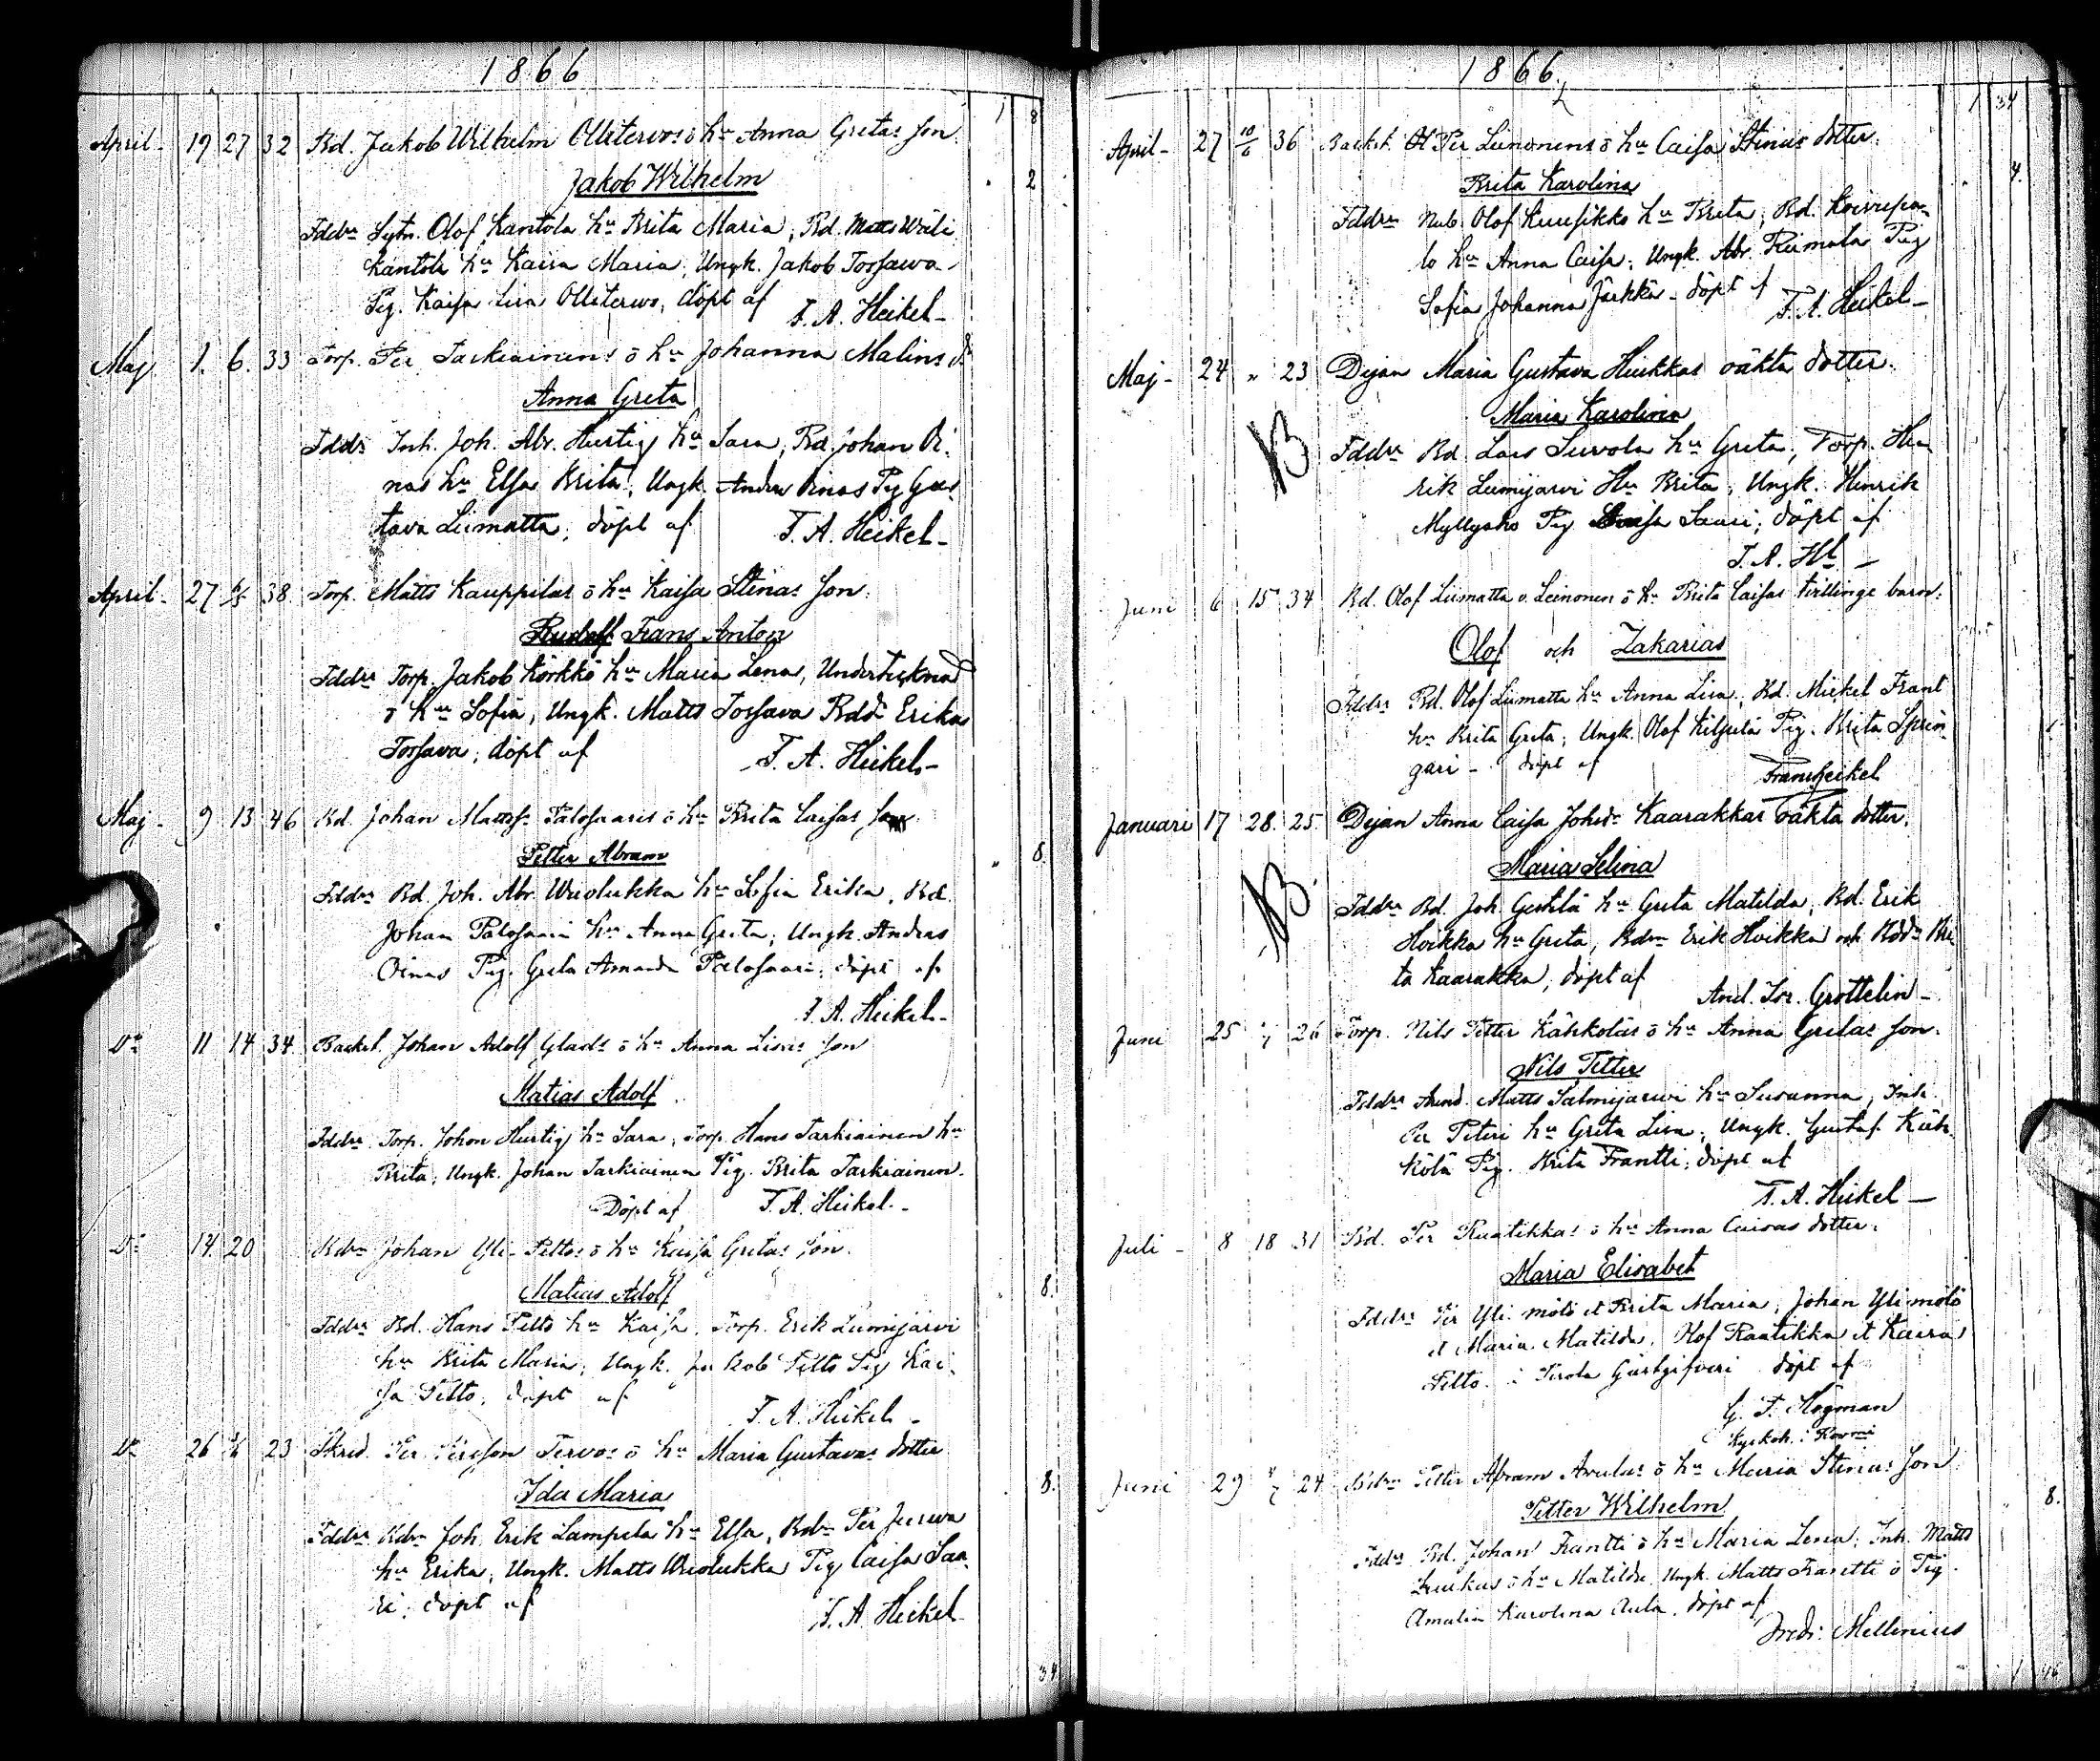 1866
1 8
April - 19 27 32 Bd. Jakob Wilhelm Ollitervos ö hu Anna Gretas son.
Jakob Wilhelm
2
Fddra Sytn. Olof Kantola hu Brita Maria, Bd. Matts Wäli
kantola hu Kaisa Maria, Ungk. Jakob Torsawa
Pig. Kaisa Lisa Ollitervo, döpt af F. A. Heikel -
Maj 1. 6. 33 Torp. Per Tarkiainens ö hu Johanna Malins dr
Anna Greta
Fddr Inh. Joh. Abr. Hurtig hu Sara, Bd. Johan Oi-
nas hu Elsa Brita, Ungk. Anders Oinas Pig Gus-
tava Liimatta, döpt af F. A. Heikel -
April - 27 38 Torp. Matts Kauppilas ö hu Kaisa Stinas son.
Rudolf Frans Anton
Fddra Torp. Jakob Körkkö hu Maria Lena, Undertecknad
ö hu Sofia, Ungk. Matts Torsava Bddr Erika
Torsava, döpt af F. A. Heikel -
Maj - 9 13 46 Bd. Johan Mattss. Palosaaris ö hu Brita Caisas son.
Petter Abram
8
Fddra Bd. Joh. Abr. Wuolukka hu Sofia Erika, Bd.
Johan Palosaari hu Anna Greta, Ungk. Andras
Oinas Pig. Greta Amanda Palosaari, döpt af
F. A. Heikel -
Do 11 14 34 Backst. Johan Adolf Glads ö hu Anna Lisas son
Matias Adolf
Fddra Torp. Johan Hurtig hu Sara, Torp. Hans Tarkiainen hu
Brita, Ungk. Johan Tarkiainen Pig. Brita Tarkiainen.
Döpt af F. A. Heikel -
Do 14. 20 Bdsn Johan Yli-Pettos ö hu Kaisa Gretas son.
Matias Adolf
8.
Fddra Bd. Hans Petto hu Kaisa, Torp. Erik Lumijärvi
hu Brita Maria, Ungk. Jakob Petto Pig Kai-
sa Petto, döpt af
F. A. Heikel -
Do 26 23 Skrd. Per Persson Tervos ö hu Maria Gustavas dotter
Ida Maria
8.
Fddra Bdsn Joh. Erik Lampela hu Elsa, Bdsn Per Juuwa
hu Erika, Ungk. Matts Wuolukka Pig Caisa Saa-
ri, döpt af F. A. Heikel
34
1866.
1 34
April - 27 10/6 36 Backst. Per Leinonens ö hu Caisa Stinas dotter.
Brita Karolina
4.
Fddra Nub. Olof Kuusikko hu Brita, Bd. Koivupa-
lo hu Anna Caisa, Ungk. Abr. Riimala Pig
Sofia Johanna Jarkka - döpt af F. A. Heikel -
Maj - 24 " 23 Dejan Maria Gustava Huikkas oäkta dotter.
Maria Karolina
Fddra Bd. Lars Suvola hu Greta, Torp. Hen
rik Lumijarvi Hu Brita, Ungk. Henrik
Myllyaho Pig Saari, döpt af
F. A. Hl. -
Juni 6 15 34 Bd. Olof Liimatta o. Leinonen ö hu Brita Caisas tvillinge barn.
Olof och Zakarias
Fddra Bd. Olof Liimatta hu Anna Lisa, Bd. Mickel Frant
hu Brita Greta, Ungk. Olof Kilpelä Pig. Brita Sprin
gari - döpt af Frans Heikel
Januari 17 28. 25. Dejan Anna Caisa Johsdr Kaarakkas oäkta dotter.
Maria Selina
Fddra Bd. Joh. Gerkilä hu Greta Matilda, Bd. Erik
Hoikka hu Greta, Bdsn Erik Hoikka och Bddr Bri
ta Kaarakka, döpt af
And. Isr. Grottelin -
Juni 25 26 Torp. Nils Petter Kähkoläs ö hu Anna Gretas son.
Nils Petter
Fddra Arend. Matts Salmijarwi hu Susanna, Inh.
Per Peteri hu Greta Lisa, Ungk. Gustaf Käh-
kölä Pig. Brita Frantti, döpt af
F. A. Heikel -
Juli - 8 18 31 Bd. Per Raatikkas ö hu Anna Caisas dotter.
Maria Elisabet
Fddra Per Yli mölö et Brita Maria, Johan Ylimölö
et Maria Matilda, Olof Raatikka et Kaisa
Petto. i Gästgifveri döpt af
G. F. Högman
Kyrkoh.
Juni 29 24 Bdsn Petter Abram Avulas ö hu Maria Stinas son.
Petter Wilhelm
8.
Fddra Bd. Johan Frantti ö hu Maria Lena, Inh. Matts
ö hu Matilda, Ungk. Matts Frantti ö Pig.
Amalia Karolina Aula, döpt af
Fredr. Mellenius